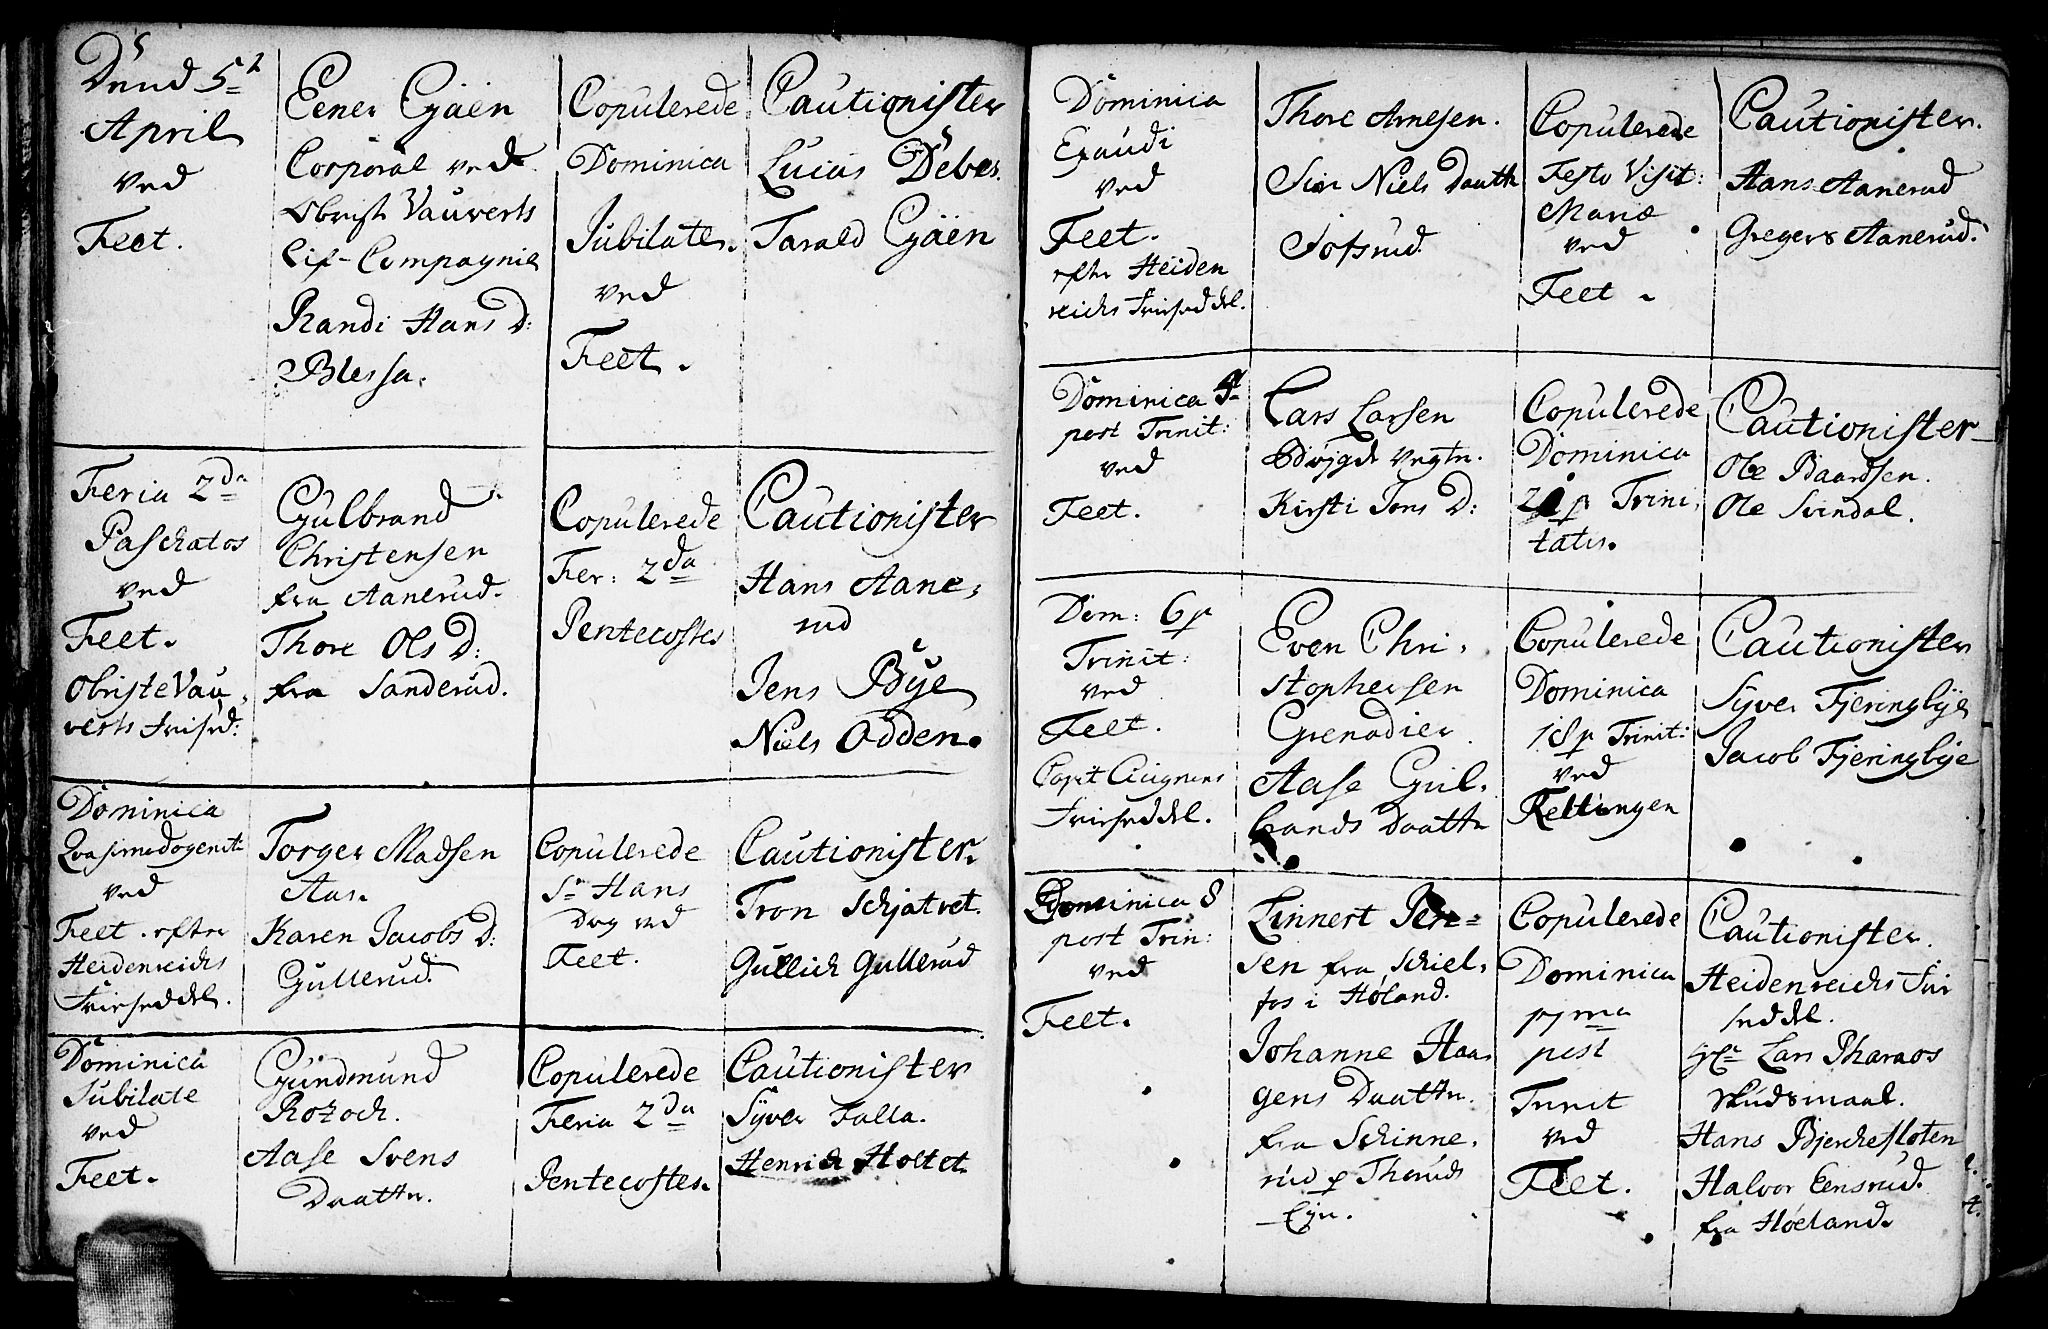 Dend 5t
April
ved
Feet.
Eener Gjäen
Corporal ved
Obrist Vauverts
Lif-Compagnie
Randi Hans D:
Blessa.
Copulerede
Dominica
Jubilate.
ved
Feet.
Cautionister
Lucas Debes.
Tarald Gjäen
Feria 2da
Paschatos
ved
Feet.
Obriste Vau,
verts
Gulbrand
Christensen
fra Aanerud.
Thore Ols D:
fra Sanderud.
Copulerede
Fer: 2da
Pentecostes
Cautionister
Hans Aane,
rud
Jens Bÿe
Niels Odden.
Dominica
Qvasimodogenit:
ved
Feet. efter
Heidenreichs
Frieseddel.
Torger Madsen
Aas.
Karen Jacobs D:
Gullerud.
Copulerede
St Hans
Dag ved
Feet.
Cautionister.
Tron Schjatvet.
Gullich Gullerud
Dominica
Jubilate
ved
Feet.
Gundmund
Rotzoch.
Aase Svens
Daatter.
Copulerede
Feria 2da
Pentecostes.
Cautionister
Sÿver Falla.
Henrich Holtet.
Dominica
Exaudi
ved
Feet.
efter Heiden
reichs Frieseddel.
Thore Arnesen.
Siri Niels Daatter
Sofsrud.
Copulerede
Festo Visit:
Mariæ
ved
Feet.
Cautionister.
Hans Aanerud
Gregers Aanerud.
Dominica 4
post Trinit:
ved
Feet.
Lars Larsen
Kirsti Jons D:
Copulerede
Dominica
p Trini,
tatis.
Cautionister
Ole Baardsen.
Ole Svindal.
Dom: 6 p
Trinit:
ved
Feet.
Capit
Frieseddel.
Even Chri,
stophersen
Grenadier
Aase Gul,
brands Daatter
Copulerede
Dominica
18 p Trinit:
ved
Rellingen
Cautionister
Sÿver Fjeringbÿe
Jacob Fjeringbÿe
Dominica 8
post Trin:
ved
Feet.
Linnert Jen=
sen fra Schiel,
fos i Høland.
Johanne Haa,
gens Daatter.
fra Schinne,
rud p Tharuds
Eje.
Copulerede
Dominica
pma
post
Trinit
ved
Feet.
Cautionister.
Heidenreichs Frie
seddel.
Hr Lars Pharaos
skudsmaal.
Hans Bjerchesloten
Halvor Eensrud.
fra Høeland.